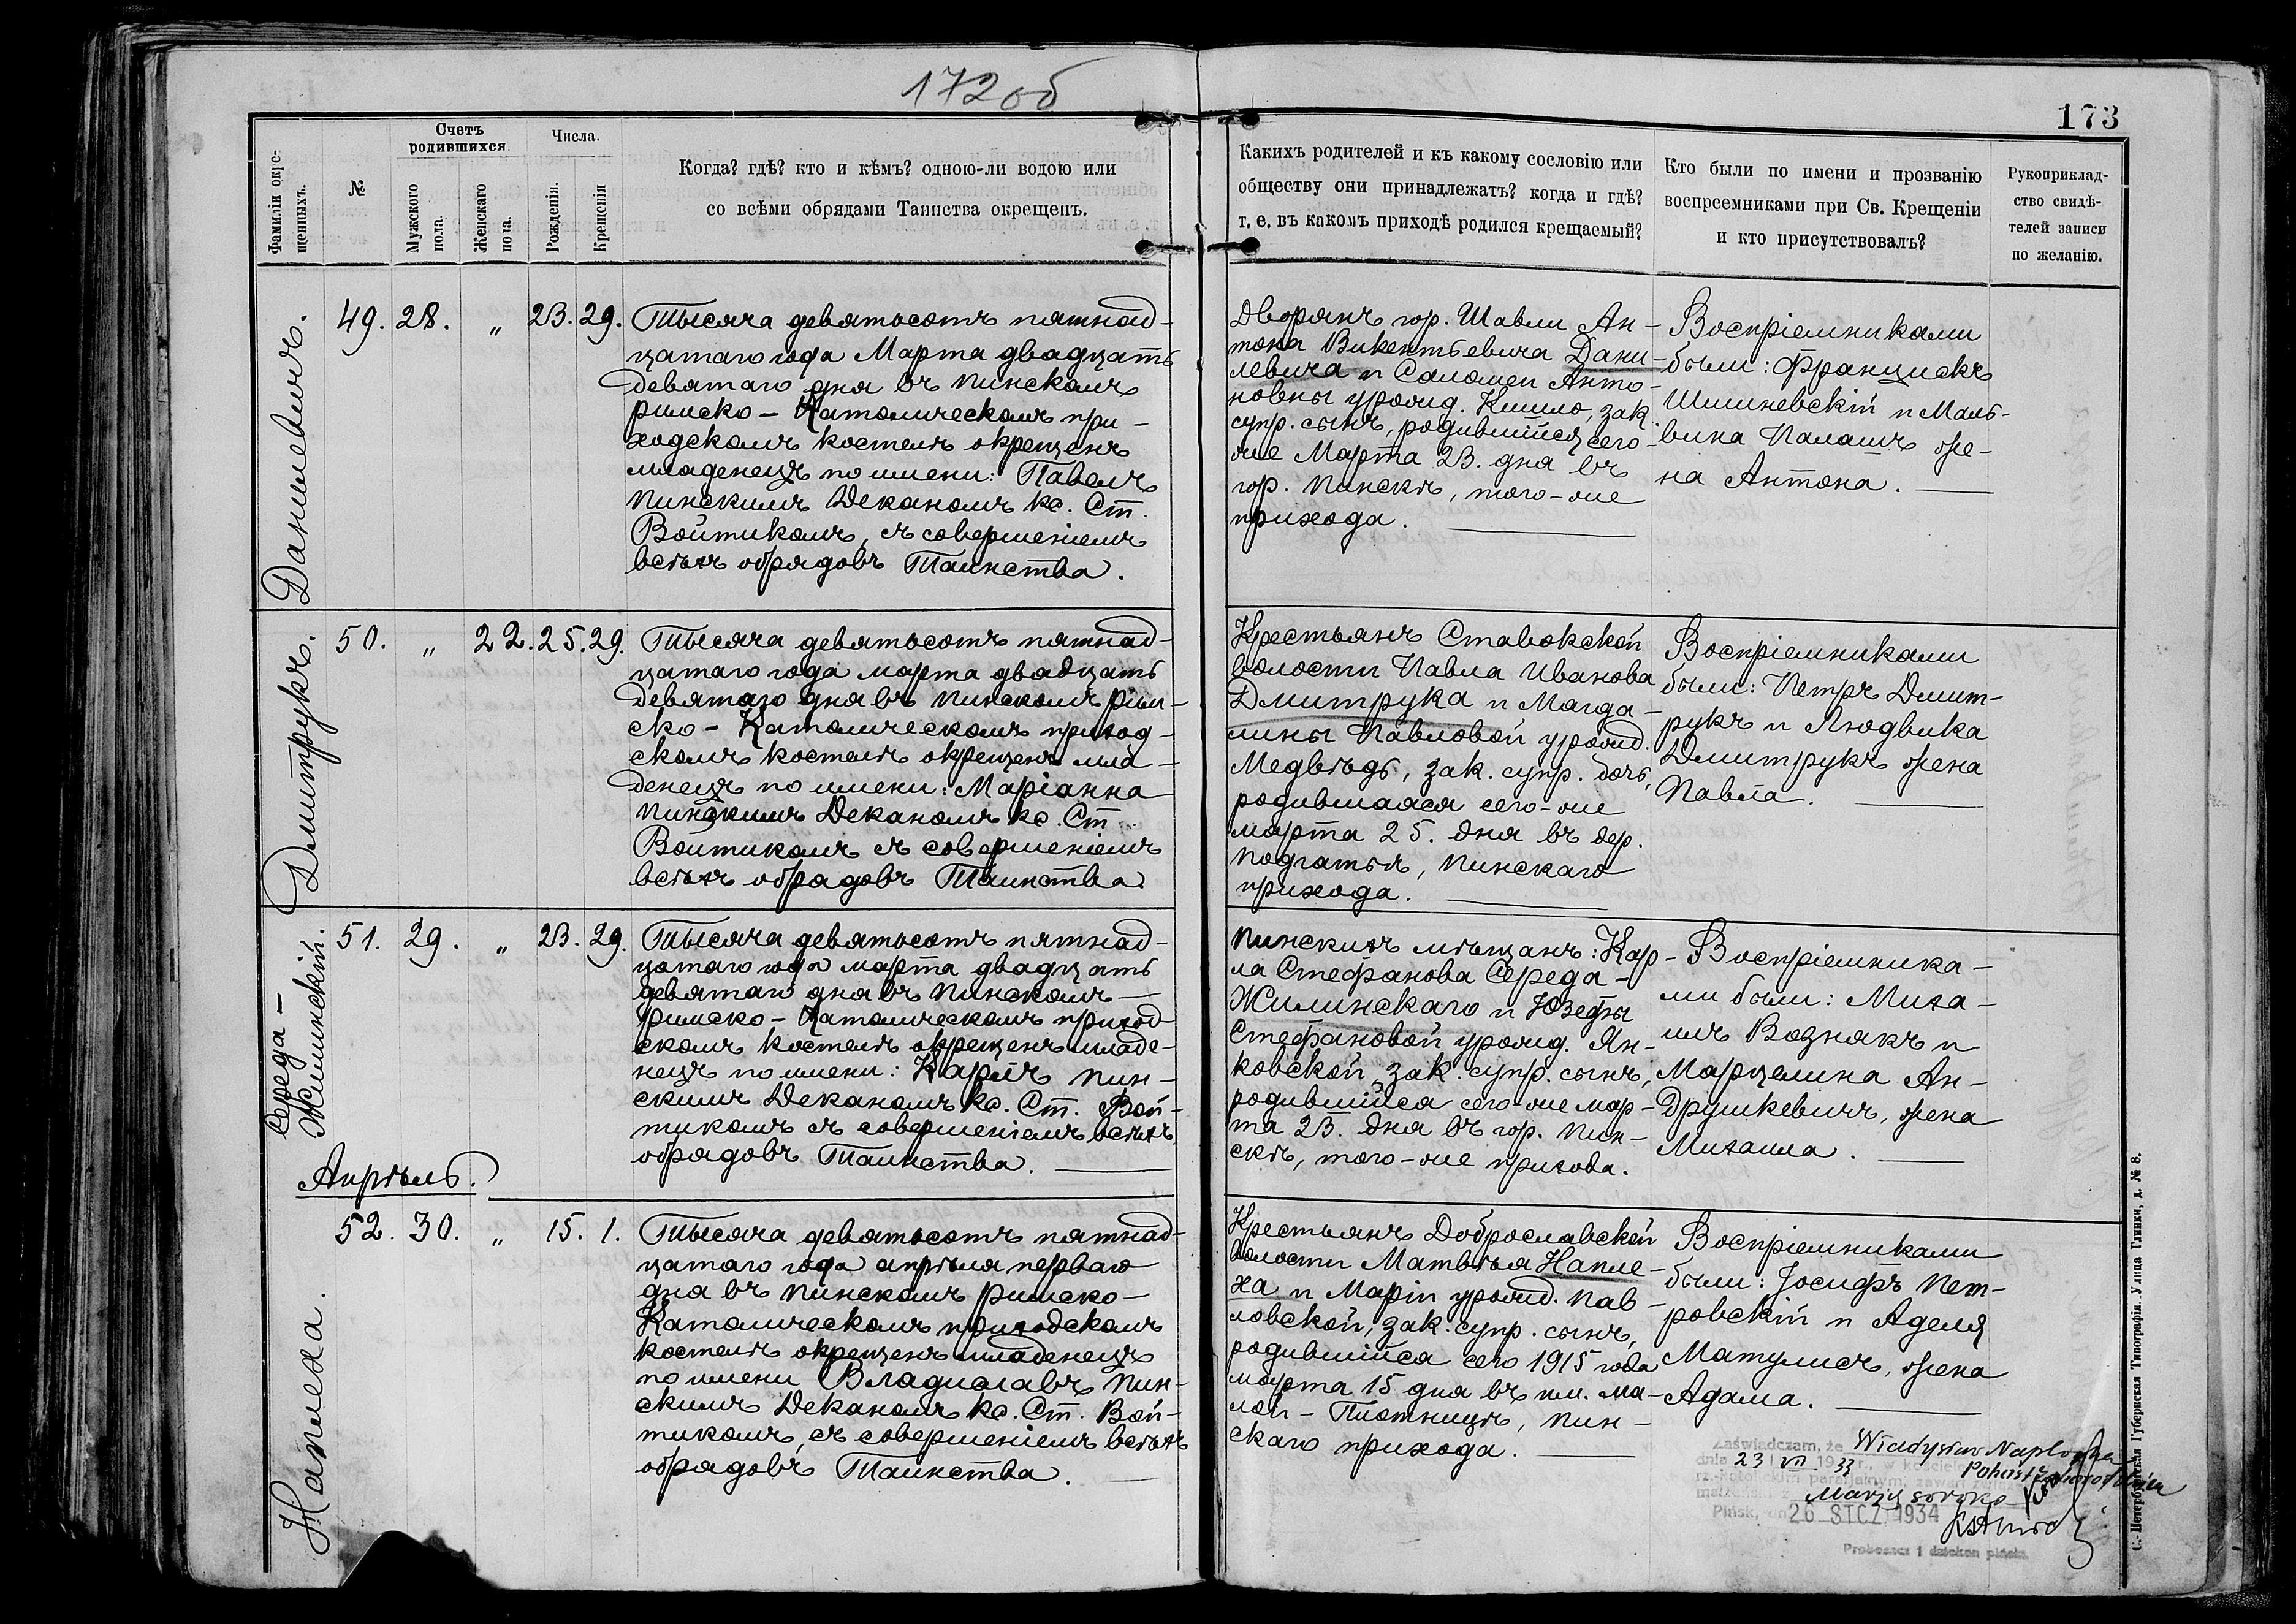 172 об
173
Фамиліи окре-
щенныхъ.
№
Счетъ
родившихся.
Мужского
пола.
Женскаго
пола.
Числа.
Рожденія.
Крещенія
Когда? гдѣ? кто и кѣмъ? одною-ли водою или
со всѣми обрядами Таинства окрещенъ.
Какихъ родителей и къ какому сословію или
обществу они принадлежатъ? когда и гдѣ?
т. е. въ какомъ приходѣ родился крещаемый?
Кто были по имени и прозванію
воспреемниками при Св. Крещеніи
и кто присутствовалъ?
Рукоприклад-
ство свидѣ-
телей записи
по желанію.
Данилевичъ.
49. 28. " 23. 29.
Тысяча девятьсотъ пятнад-
цатаго года Марта двадцать
девятаго дня въ Пинскомъ
римско-Католическомъ при-
ходскомъ костелѣ окрещенъ
младенецъ по имени: Павелъ
Пинскимъ Деканомъ кс. Ст.
Войтикомъ, съ совершеніемъ
всѣхъ обрядовъ Таинства.
Дворянъ гор. Шавли Ан-
тона Викентьевича Дани-
левича и Саломеи Анто-
новны урожд. Кишло, зак.
супр. сынъ, родившійся сего-
же Марта 23. дня въ
гор. Пинскѣ, того-же
прихода.
Воспріемниками
были: Францискъ
Шишневскій и Маль-
вина Палашъ же-
на Антона.
Дмитрукъ.
50. " 22. 25. 29.
Тысяча девятьсотъ пятнад-
цатаго года марта двадцать
девятаго дня въ Пинскомъ рим-
ско-Католическомъ приход-
скомъ костелѣ окрещенъ мла-
денецъ по имени: Маріанна
Пинскимъ Деканомъ кс. Ст.
Войтикомъ съ совершеніемъ
всѣхъ обрядовъ Таинства.
Крестьянъ Ставокской
волости Павла Иванова
Дмитрука и Магда-
лины Павловой урожд.
Медвѣдь, зак. супр. дочь,
родившаяся сего-же
марта 25. дня въ дер.
Подгатьѣ, Пинскаго
прихода.
Воспріемниками
были: Петръ Дмит-
рукъ и Людвика
Дмитрукъ жена
Павла.
Середа-
Жилинскій.
51. 29. " 23. 29.
Тысяча девятьсотъ пятнад-
цатаго года марта двадцать
девятаго дня въ Пинскомъ
римско-Католическомъ приход-
скомъ костелѣ окрещенъ младе-
нецъ по имени: Карлъ Пин-
скимъ Деканомъ кс. Ст. Вой-
тикомъ съ совершеніемъ всѣхъ
обрядовъ Таинства.
Пинскихъ мѣщанъ: Кар-
ла Стефанова Середа-
Жилинскаго и Юзефы
Стефановой урожд. Ян-
ковской, зак. супр. сынъ,
родившійся сего-же мар-
та 23. дня въ гор. Пин-
скѣ, того-же прихода.
Воспріемника-
ми были: Миха-
илъ Вознякъ и
Марцелина Ан-
друшкевичъ, жена
Михаила.
Апрѣль.
Наплеха.
52. 30. " 15. 1.
Тысяча девятьсотъ пятнад-
цатаго года апрѣля перваго
дня въ Пинскомъ римско-
Католическомъ приходскомъ
костелѣ окрещенъ младенецъ
по имени Владиславъ Пин-
скимъ Деканомъ кс. Ст. Вой-
тикомъ, съ совершеніемъ всѣхъ
обрядовъ Таинства.
Крестьянъ Доброславской
волости Матвѣя Напле-
ха и Маріи урожд. Пав-
ловской, зак. супр. сынъ,
родившійся сего 1915 года
марта 15 дня въ им. Ма-
лой-Плотницѣ, Пин-
скаго прихода.
Воспріемниками
были: Іосифъ Пет-
ровскій и Аделя
Матулисъ, жена
Адама.
Zaświadczam, że Władysław
dnia 23 VII 1933 r., w kościele
rz.-katolickim parafjalnym
Marją Soroko
Pińsk, dn. 26 STCZ 1934
Proboszcz i dziekan piński.
С.-Петербургская Губернская Типографія. Улица Глинки, д. № 8.